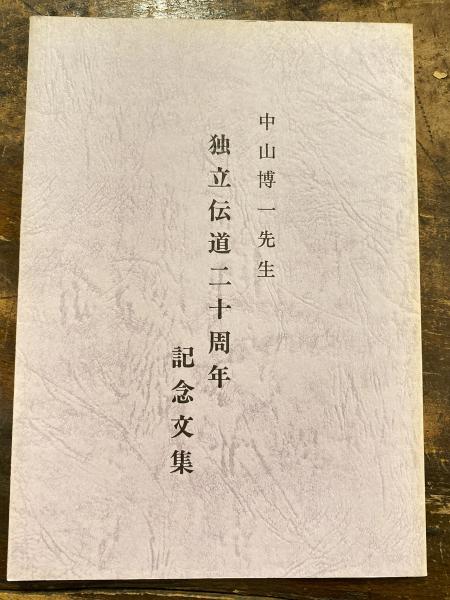 中山博一先生
独立伝道二十周年
記念文集